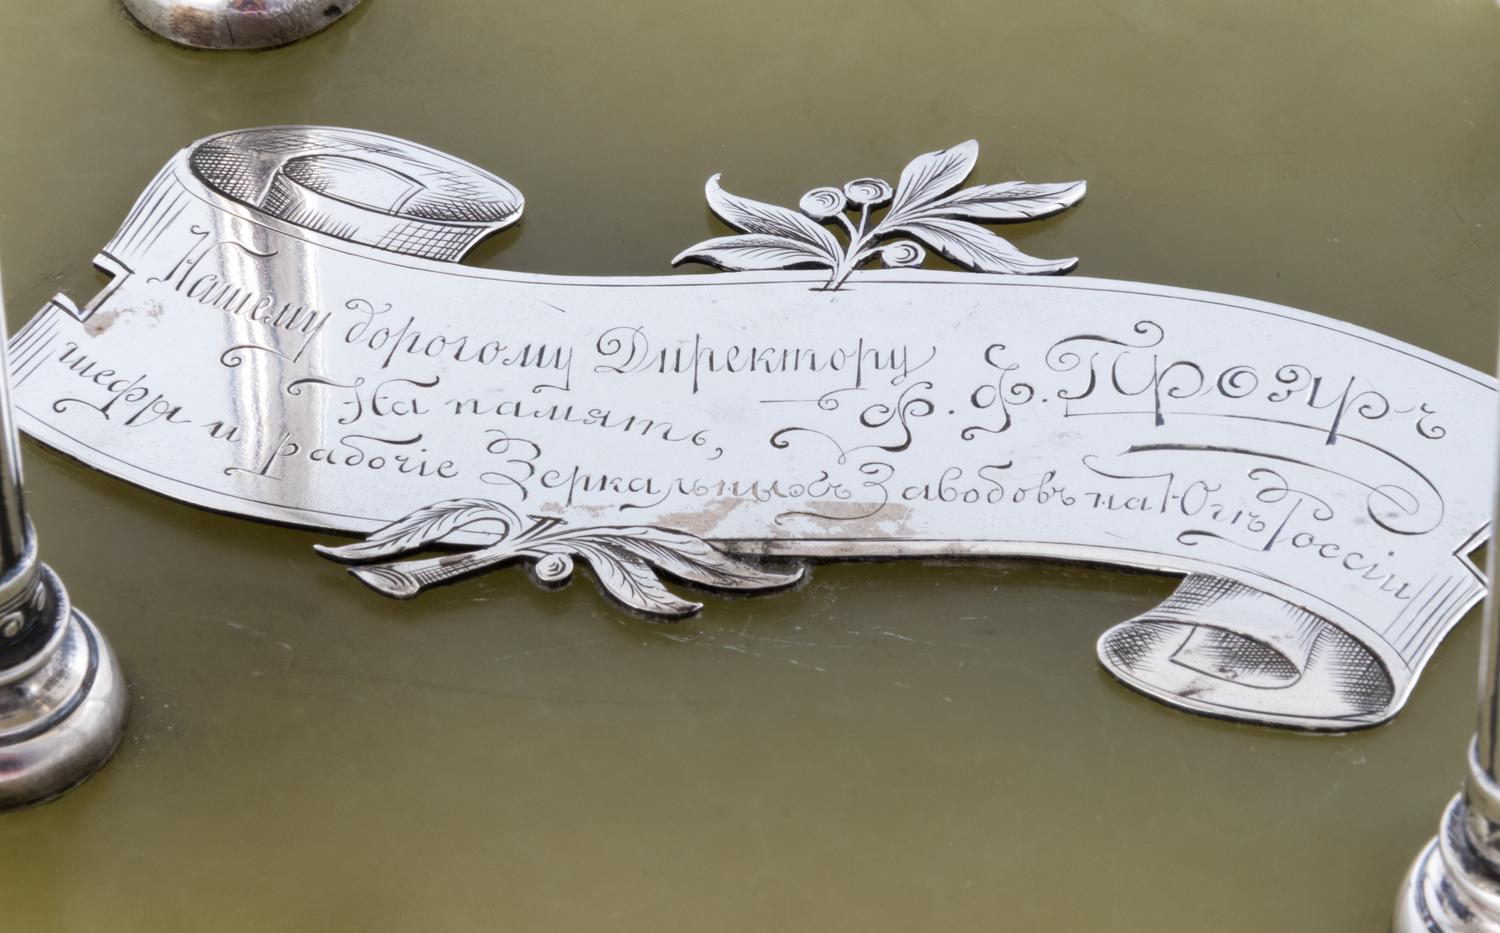 Нашему дорогому Директору Ф. Ф. Прозръ
На память,
шефы и рабочіе Зеркальныхъ Заводовъ на Югѣ Россіи